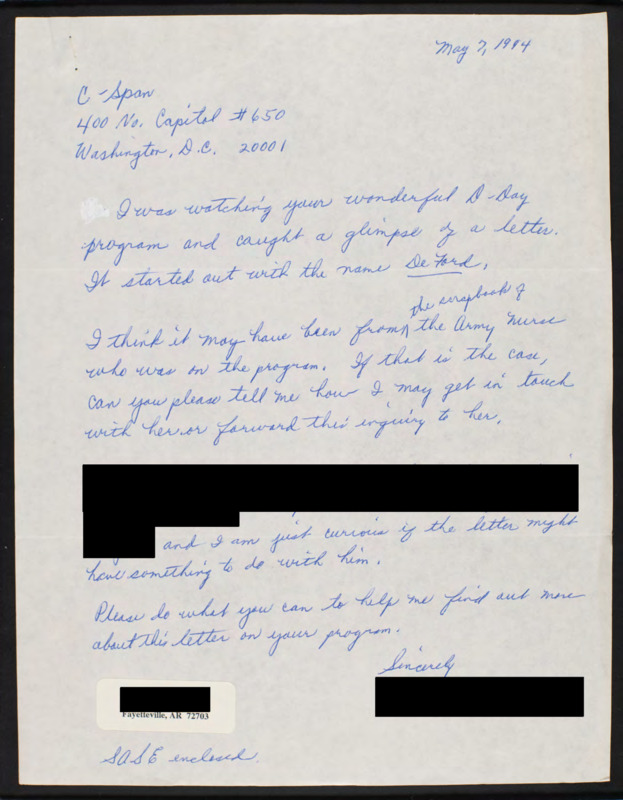 May 7, 1994
C-Span
400 No. Capitol #650
Washington, D.C. 20001
I was watching your wonderful D-Day
program and caught a glimpse of a letter.
It started out with the name De Ford.
the scrapbook of
I think it may have been from the Army Nurse
who was on the program. If that is the case,
can you please tell me how I may get in touch
with her or forward this inquiry to her.
and I am just curious if the letter might
have something to do with him.
Please do what you can to help me find out more
about this letter on your program.
Sincerely
Fayetteville, AR 72703
SASE enclosed.